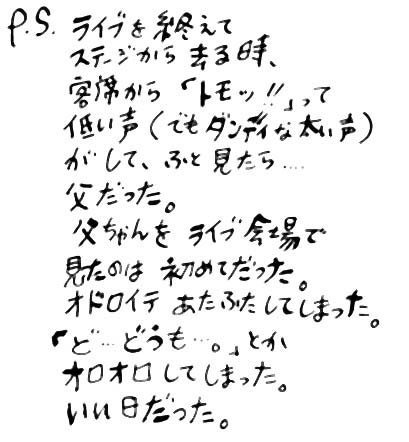 P.S. ライブを終えて
ステージから去る時、
客席から「トモッ!!」って
低い声(でもダンディな太い声)
がして、ふと見たら....
父だった。
父ちゃんをライブ会場で
見たのは初めてだった。
オドロイテあたふたしてしまった。
「ど…どうも…。」とか
オロオロしてしまった。
いい日だった。